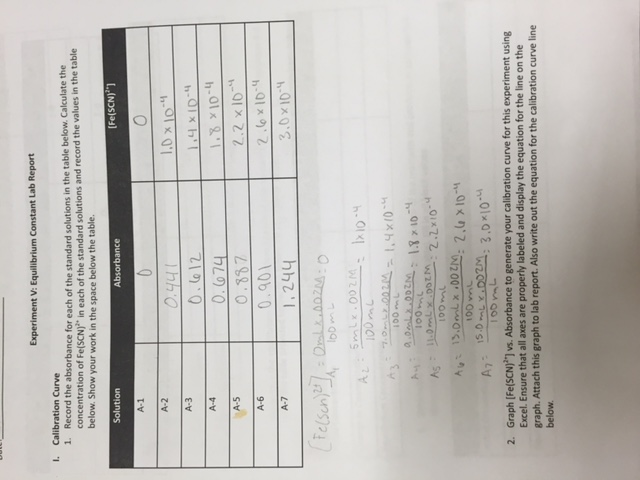 Experiment V: Equilibrium Constant Lab Report
I. Calibration Curve
1. Record the absorbance for each of the standard solutions in the table below. Calculate the
concentration of Fe(SCN)²⁺ in each of the standard solutions and record the values in the table
below. Show your work in the space below the table.
Solution Absorbance [Fe(SCN)²⁺]
A-1 0 0
A-2 0.441 1.0 x 10⁻⁴
A-3 0.612 1.4 x 10⁻⁴
A-4 0.674 1.8 x 10⁻⁴
A-5 0.887 2.2 x 10⁻⁴
A-6 0.901 2.6 x 10⁻⁴
A-7 1.244 3.0 x 10⁻⁴
[Fe(SCN)²⁺] A₁ = 0mL x .002M : 0
100mL
A2 = 5mL x .002M = 1x10⁻⁴
100mL
A3 = 7.0mL x .002M = 1.4x10⁻⁴
100mL
A4 = 9.0mL x .002M : 1.8 x 10⁻⁴
100mL
A5 = 11.0mL x .002M : 2.2x10⁻⁴
100mL
A6 = 13.0mL x .002M : 2.6 x 10⁻⁴
100mL
A7 = 15.0mL x .002M : 3.0x10⁻⁴
100mL
2. Graph [Fe(SCN)²⁺] vs. Absorbance to generate your calibration curve for this experiment using
Excel. Ensure that all axes are properly labeled and display the equation for the line on the
graph. Attach this graph to lab report. Also write out the equation for the calibration curve line
below.